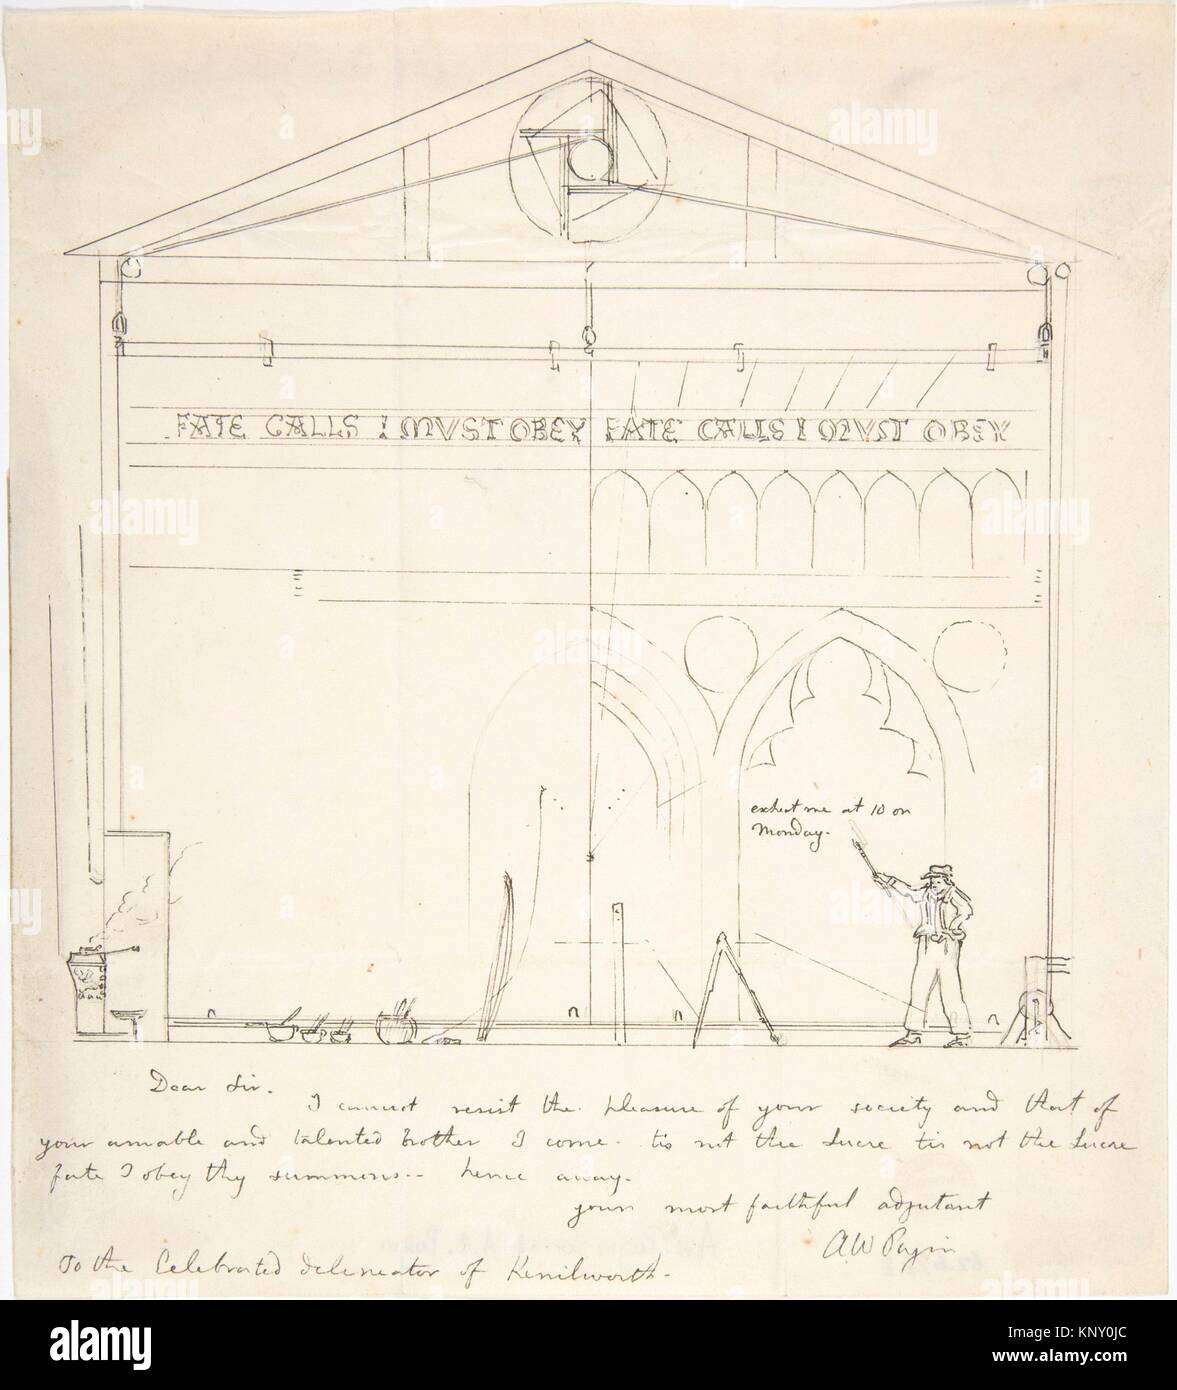 FATE CALLS I MVST OBEY FATE CALLS I MVST OBEY
exhect me at 10 on
Monday.
Dear Sir.
I cannot resist the pleasure of your society and that of
your amable and talented brother I come. tis not the Lucre tis not the Lucre
fate I obey thy summons-- hence away.
your most faithful adjutant
AW Pugin
To the Celebrated delineator of Kenilworth-
alamy
Image ID: KNY0JC
www.alamy.com